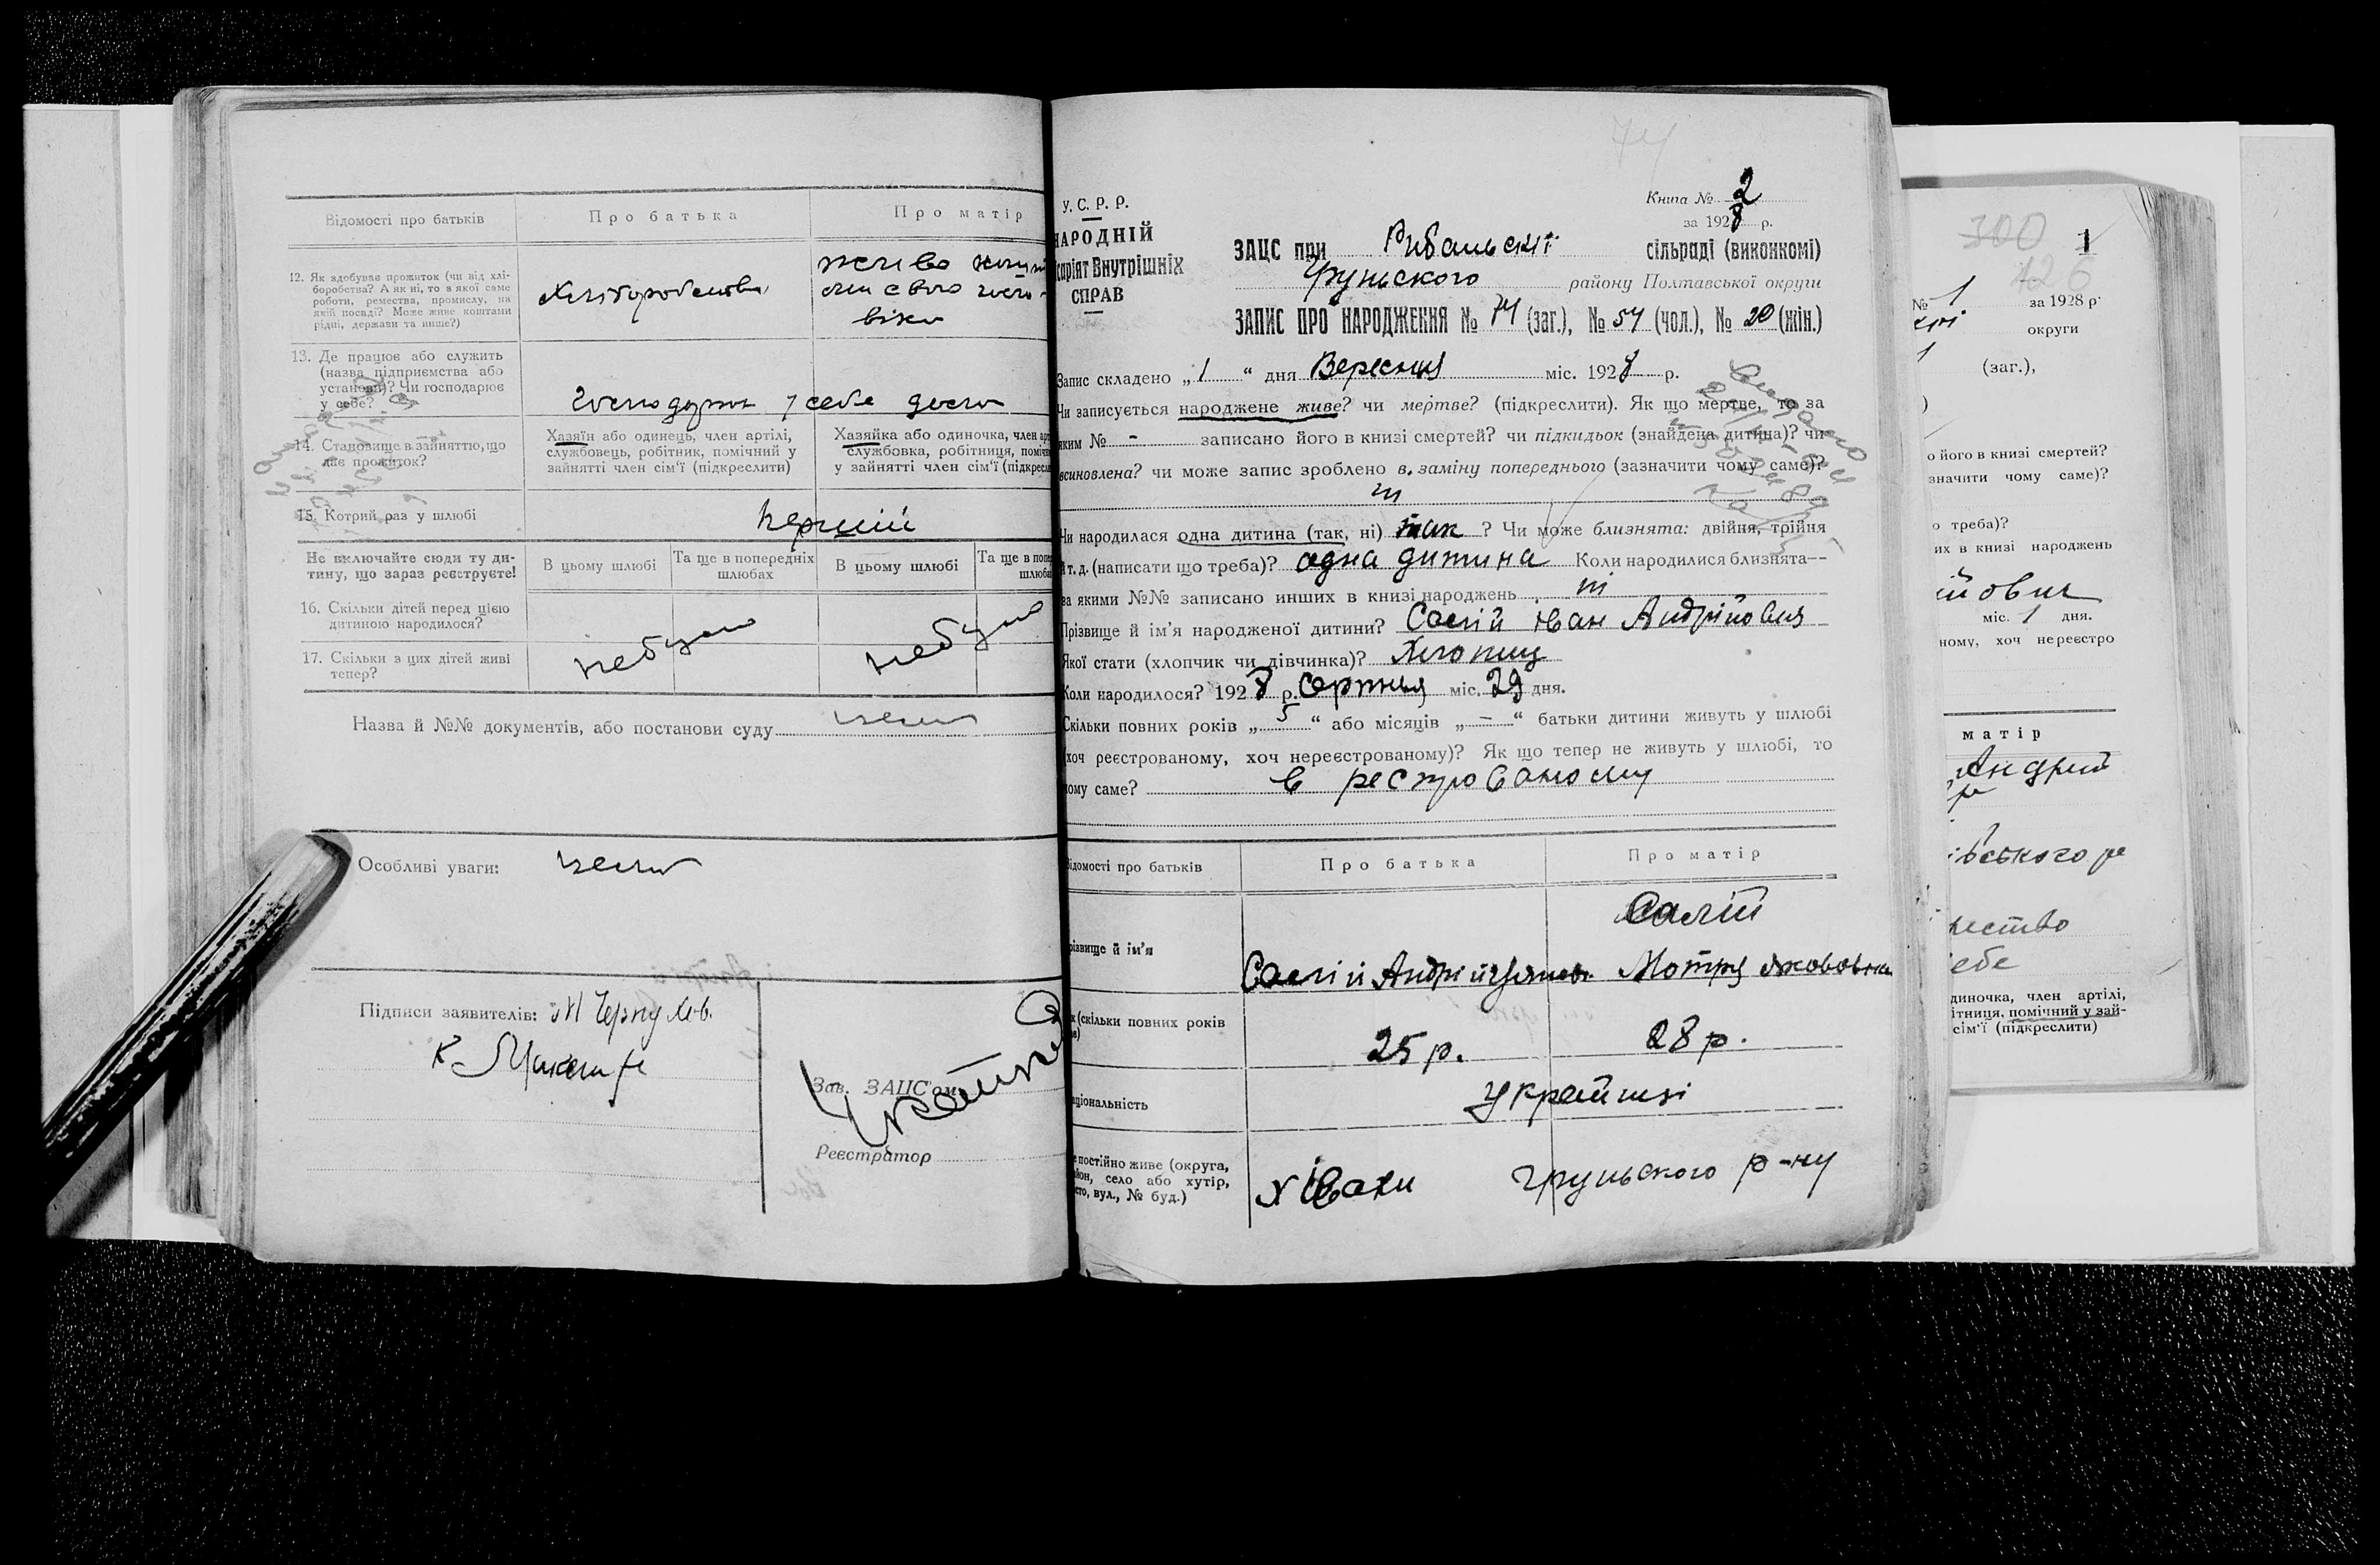 Відомості про батьків
Про батька
Про матір
12. Як здобуває прожиток (чи від хлі-
боробства? А як ні, то з якої саме
роботи, ремества, промислу, на
якій посаді? Може живе коштами
рідні, держави та инше?)
Хліборобства
13. Де працює або служить
(назва підприємства або
установи)? Чи господарює
у себе?
14. Становище в зайняттю, що
дає прожиток?
Хазяїн або одинець, член артілі,
службовець, робітник, помічний у
зайнятті член сім'ї (підкреслити)
Хазяйка або одиночка, член арт
службовка, робітниця, поміч
у зайнятті член сім'ї (підкресл
15. Котрий раз у шлюбі
перший
Не включайте сюди ту ди-
тину, що зараз реєструєте!
В цьому шлюбі
Та ще в попередніх
шлюбах
В цьому шлюбі
Та ще в попе
шлюба
16. Скільки дітей перед цією
дитиною народилося?
17. Скільки з цих дітей живі
тепер?
небуло
небуло
Назва й №№ документів, або постанови суду нема
Особливі уваги: нема
Підписи заявителів:
Зав. ЗАЦС'ом
Реєстратор
74
У. С. Р. Р.
НАРОДНІЙ
сарїят Внутрішніх
СПРАВ
Книга № 2
за 1928 р.
ЗАЦС при Рибальскій сільраді (виконкомі)
Груньского району Полтавської округи
ЗАПИС ПРО НАРОДЖЕННЯ № 74 (заг.), № 54 (чол.), № 20 (жін.)
Запис складено „1“ дня Вересня міс. 1928 р.
Чи записується народжене живе? чи мертве? (підкреслити). Як що мертве, то за
яким № - записано його в книзі смертей? чи підкидьок (знайдена дитина)? чи
всиновлена? чи може запис зроблено в заміну попереднього (зазначити чому саме)?
ні
Чи народилася одна дитина (так, ні) так ? Чи може близнята: двійня, трійня
й т. д. (написати що треба)? одна дитина Коли народилися близнята—
за якими №№ записано инших в книзі народжень ні
Прізвище й ім'я народженої дитини? Салій Іван Андрійович
Якої стати (хлопчик чи дівчинка)? Хлопиц
Коли народилося? 1928 р. Серпня міс. 29 дня.
Скільки повних років „5“ або місяців „–“ батьки дитини живуть у шлюбі
(хоч реєстрованому, хоч нереєстрованому)? Як що тепер не живуть у шлюбі, то
чому саме? в рестрованому
Відомості про батьків
Про батька
Про матір
Прізвище й ім'я
Салій Андрій
Салій
Мотря Якововна
(скільки повних років
25 р.
28 р.
аціональність
Українці
постійно живе (округа,
район, село або хутір,
місто, вул., № буд.)
х Івахи
Груньского р-ну
300
126
1
№ 1 за 1928 р.
округи
(заг.),
)
о його в книзі смертей?
значити чому саме)?
о треба)?
их в книзі народжень
йович
міс. 1 дня.
ному, хоч нереєстро
матір
Андрій
івського р
ество
ебе
диночка, член артілі,
ітниця, помічний у зай-
сім'ї (підкреслити)